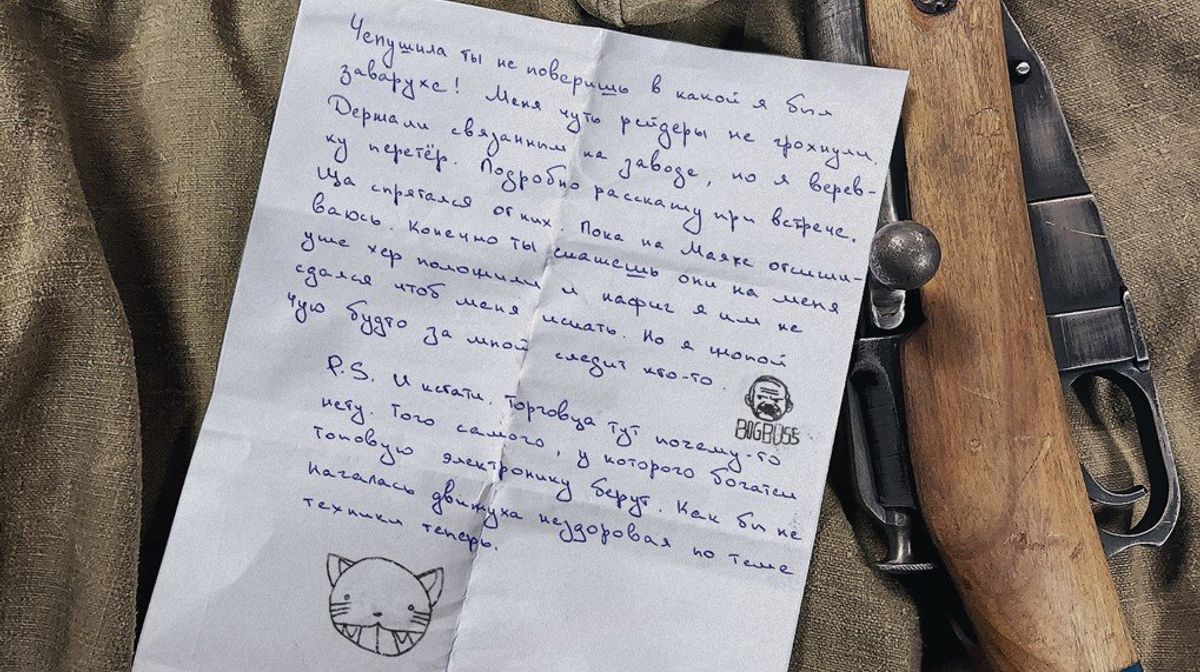 Чепушила ты не поверишь в какой я был
заварухе! Меня чуть рейдеры не грохнули.
Держали связанным на заводе, но я верев-
ку перетёр. Подробно расскажу при встрече.
Ща спрятался от них. Пока на Маяке отсижи-
ваюсь. Конечно ты скажешь они на меня
уже хер положили и нафиг я им не
сдался чтоб меня искать. Но я жопой
чую будто за мной следит кто-то.
P.S. И кстати. Торговца тут почему-то
нету. Того самого, у которого богатеи
топовую электронику берут. Как бы не
началась движуха нездоровая по теме
техники теперь.
BIGBOSS